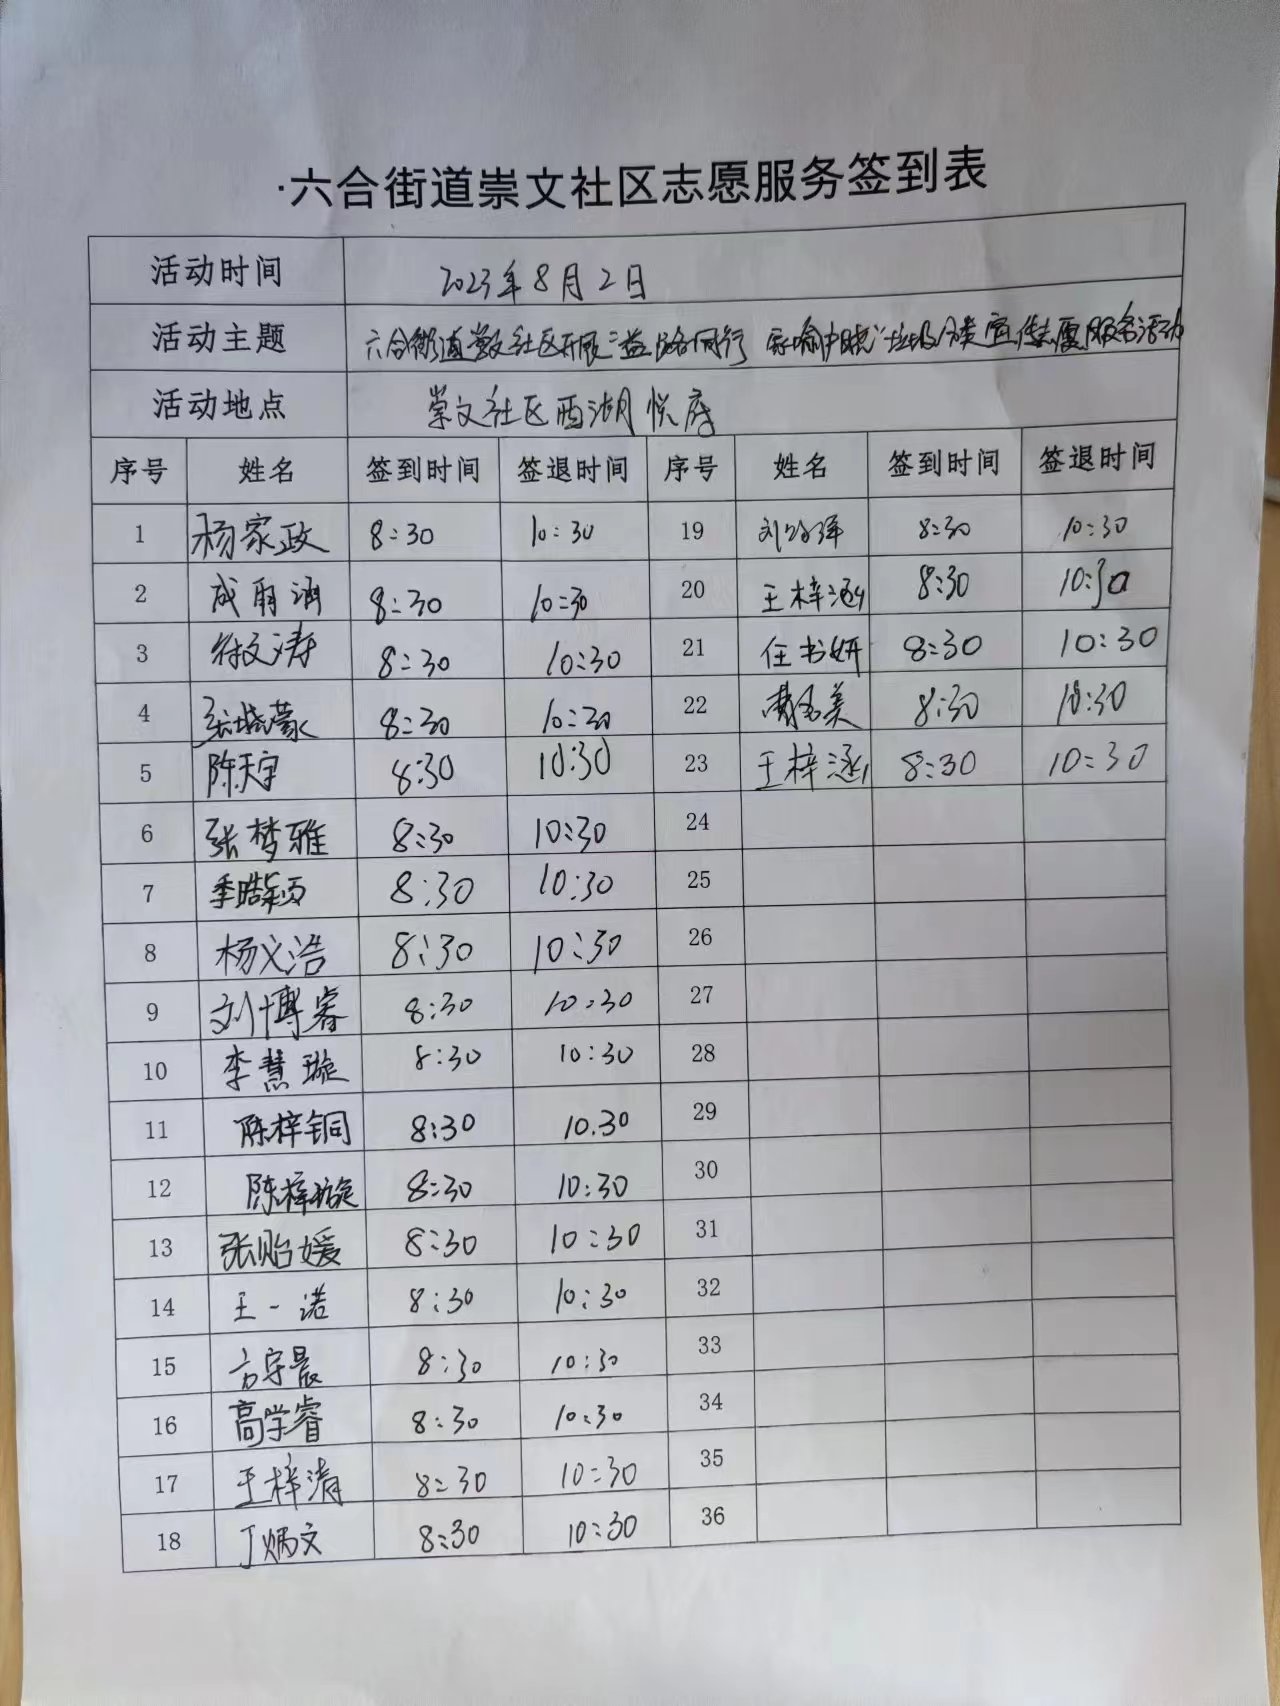 ·六合街道崇文社区志愿服务签到表
活动时间 2023年8月2日
活动主题 六合街道崇文社区开展"益路同行 家喻户晓"垃圾分类宣传志愿服务活动
活动地点 崇文社区西湖悦府
序号 姓名 签到时间 签退时间 序号 姓名 签到时间 签退时间
1 杨家政 8:30 10:30 19 刘 8:30 10:30
2 成雨涵 8:30 10:30 20 王梓涵 8:30 10:30
3 徐文涛 8:30 10:30 21 任书妍 8:30 10:30
4 张晓蒙 8:30 10:30 22 美 8:30 10:30
5 陈天宇 8:30 10:30 23 王梓涵 8:30 10:30
6 张梦雅 8:30 10:30 24
7 季皓颖 8:30 10:30 25
8 杨义浩 8:30 10:30 26
9 刘博睿 8:30 10:30 27
10 李慧璇 8:30 10:30 28
11 陈梓铜 8:30 10.30 29
12 陈梓璇 8:30 10:30 30
13 张贻媛 8:30 10:30 31
14 王一诺 8:30 10:30 32
15 方宇晨 8:30 10:30 33
16 高学睿 8:30 10:30 34
17 王梓清 8:30 10:30 35
18 丁炳文 8:30 10:30 36